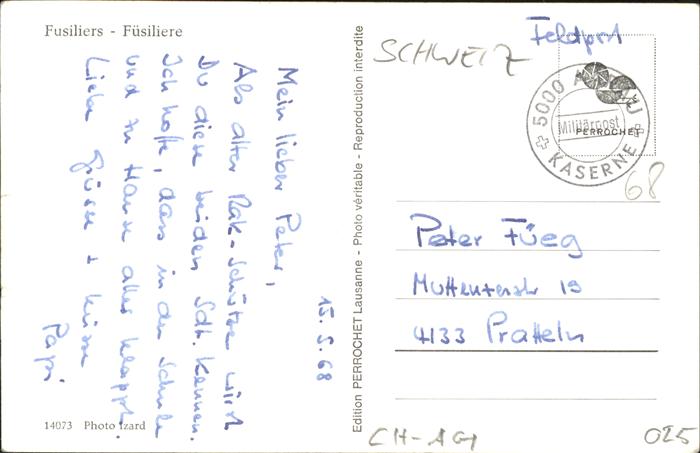 Fusiliers - Füsiliere
15.5.68
Mein lieber Peter,
Als alter Rak-Schütze wirst
Du diese beiden Sdt. kennen.
Ich hoffe, dass in der Schule
und zu Hause alles klappt.
Liebe Grüsse + Küsse
Papi
14073 Photo Izard
Edition PERROCHET Lausanne - Photo véritable - Reproduction interdite
SCHWEIZ
Feldpost
5000 AARAU
Militärpost
PERROCHET
KASERNE
68
Peter Füeg
Muttenzerstr 19
4133 Pratteln
CH-AG
025